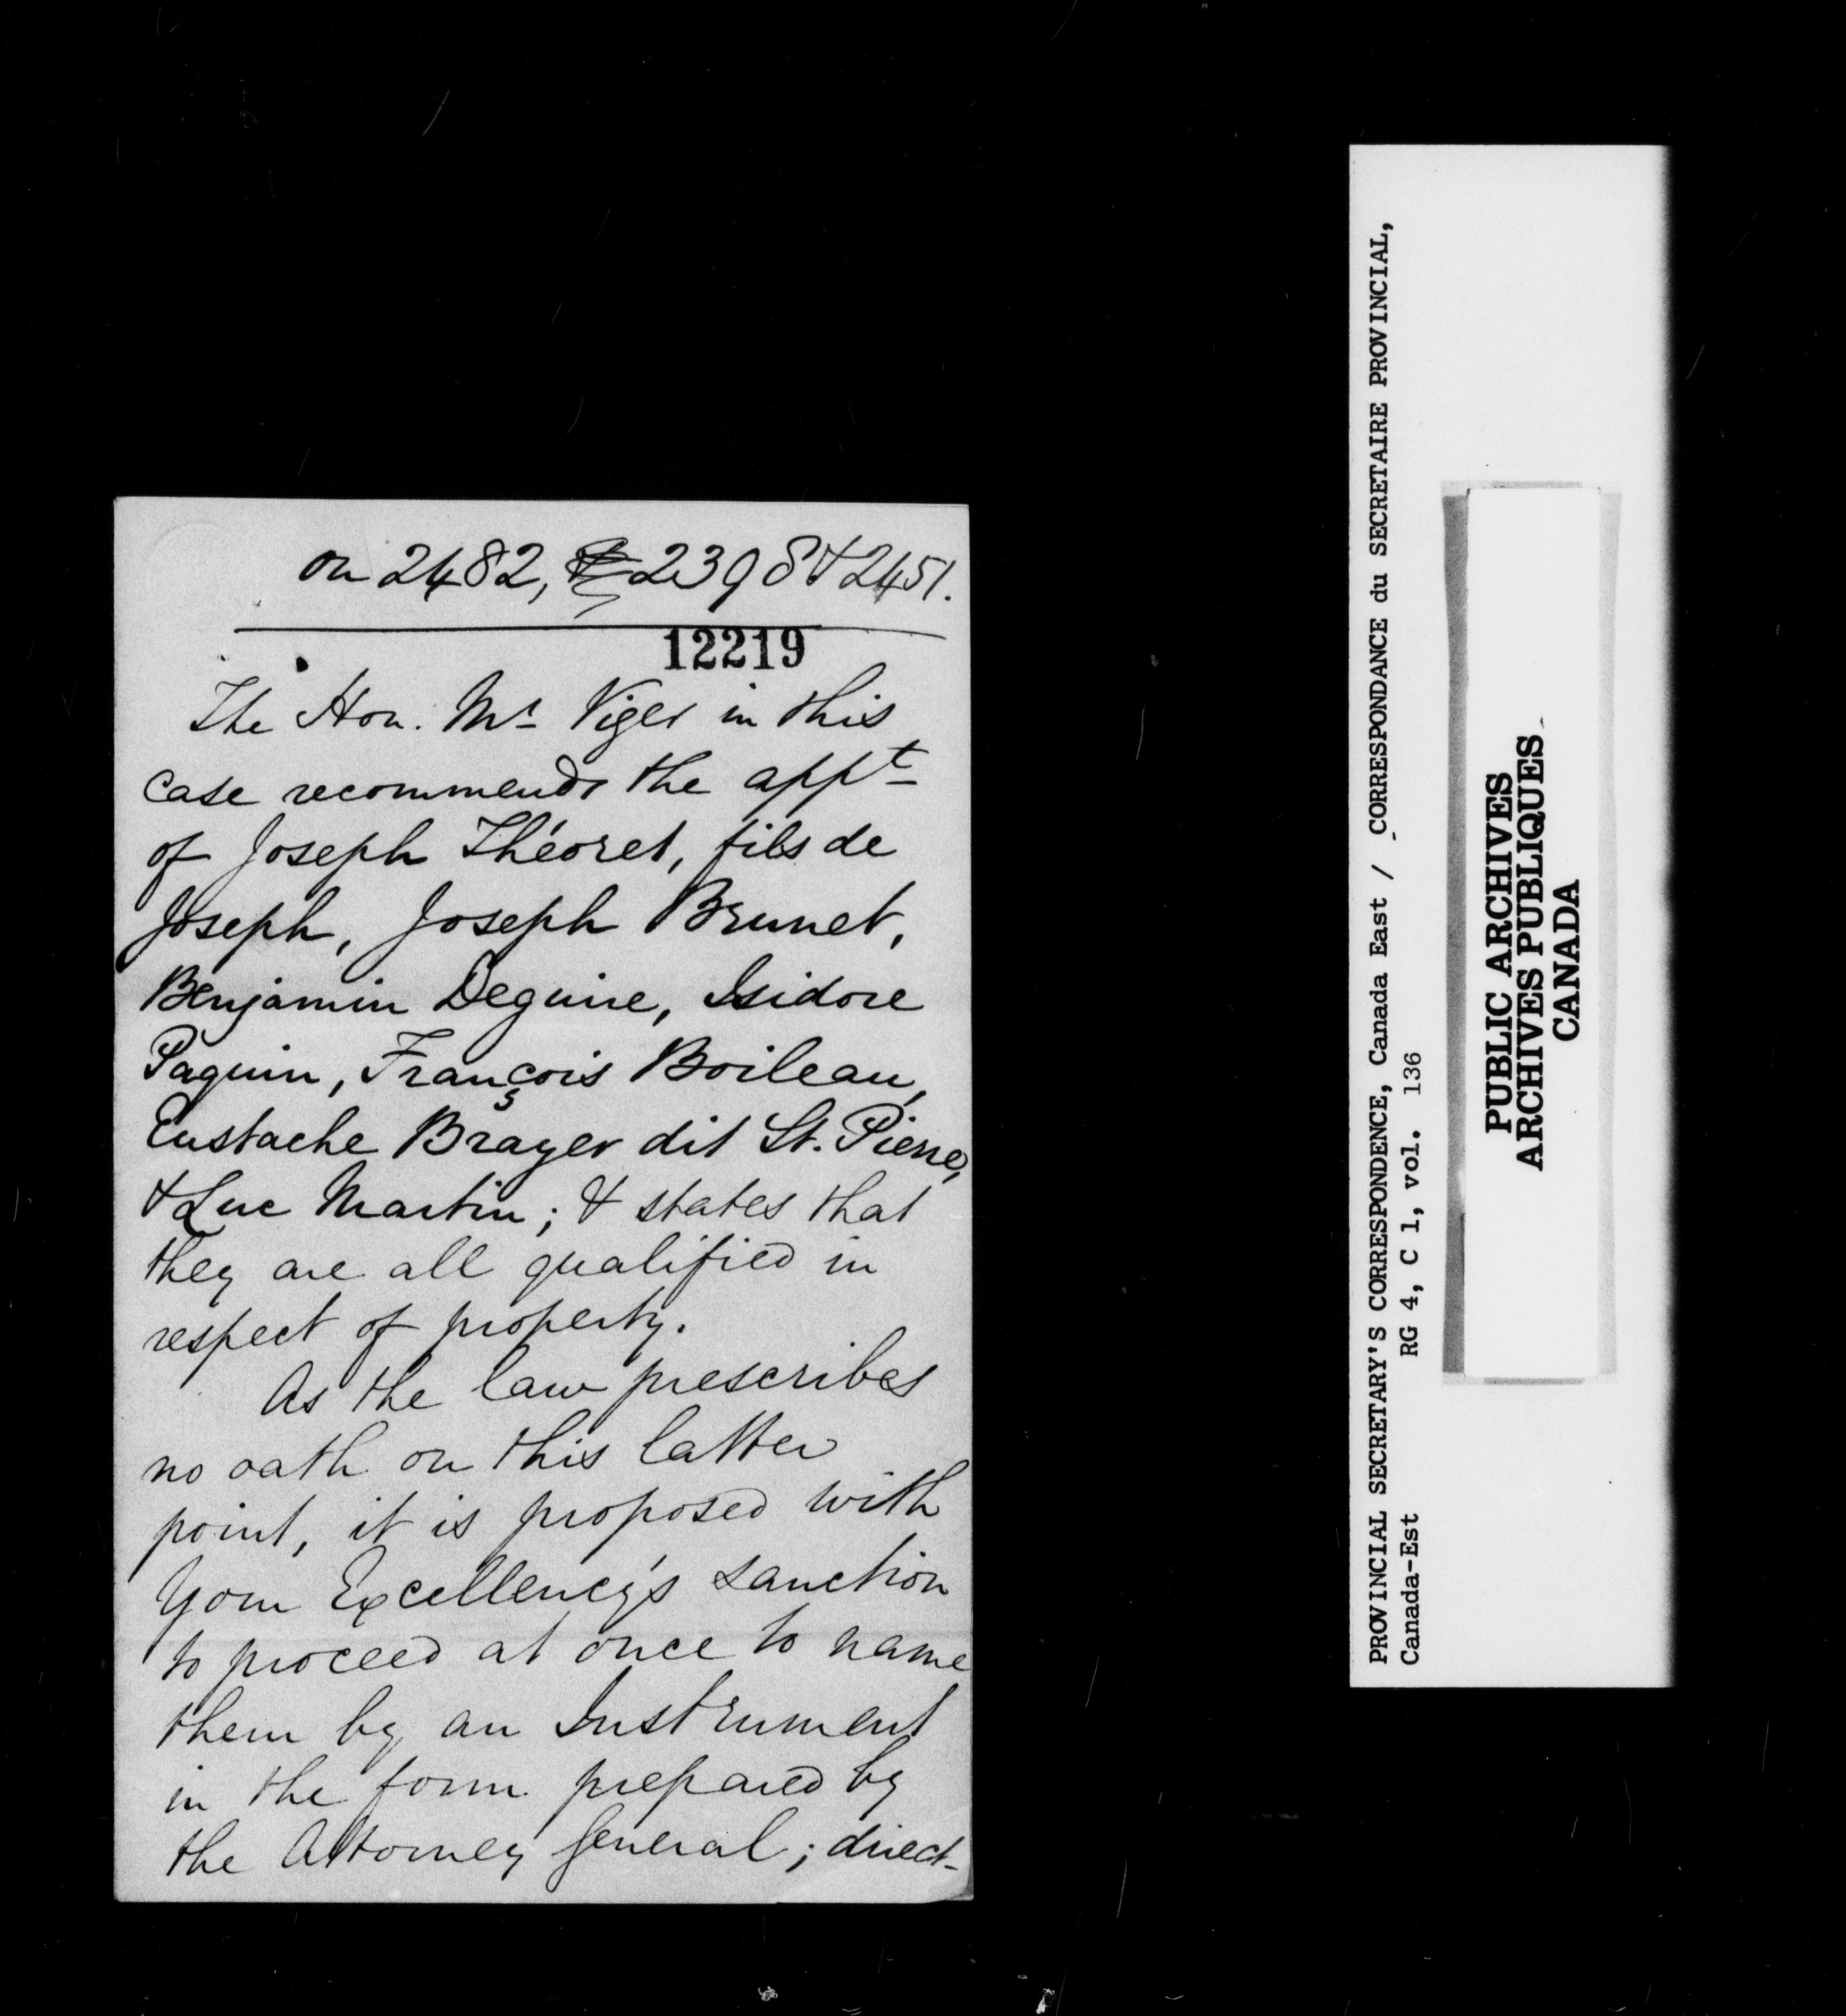 on 2482, 2398 & 2451.
12219
The Hon. Mr Viger in this
case recommends the appt
of Joseph Théoret, fils de
Joseph, Joseph Brunet,
Benjamin Deguire, Isidore
Paquin, François Boileau,
Eustache Brayer dit St. Pierre,
& Luc Martin; & states that
they are all qualified in
respect of property.
As the law prescribes
no oath on this latter
point, it is proposed with
Your Excellency's sanction
to proceed at once to name
them by an Instrument
in the form prepared by
the Attorney General; direct-
PROVINCIAL SECRETARY'S CORRESPONDENCE, Canada East / CORRESPONDANCE du SECRETAIRE PROVINCIAL,
Canada-Est RG 4, C 1, vol. 136
PUBLIC ARCHIVES
ARCHIVES PUBLIQUES
CANADA